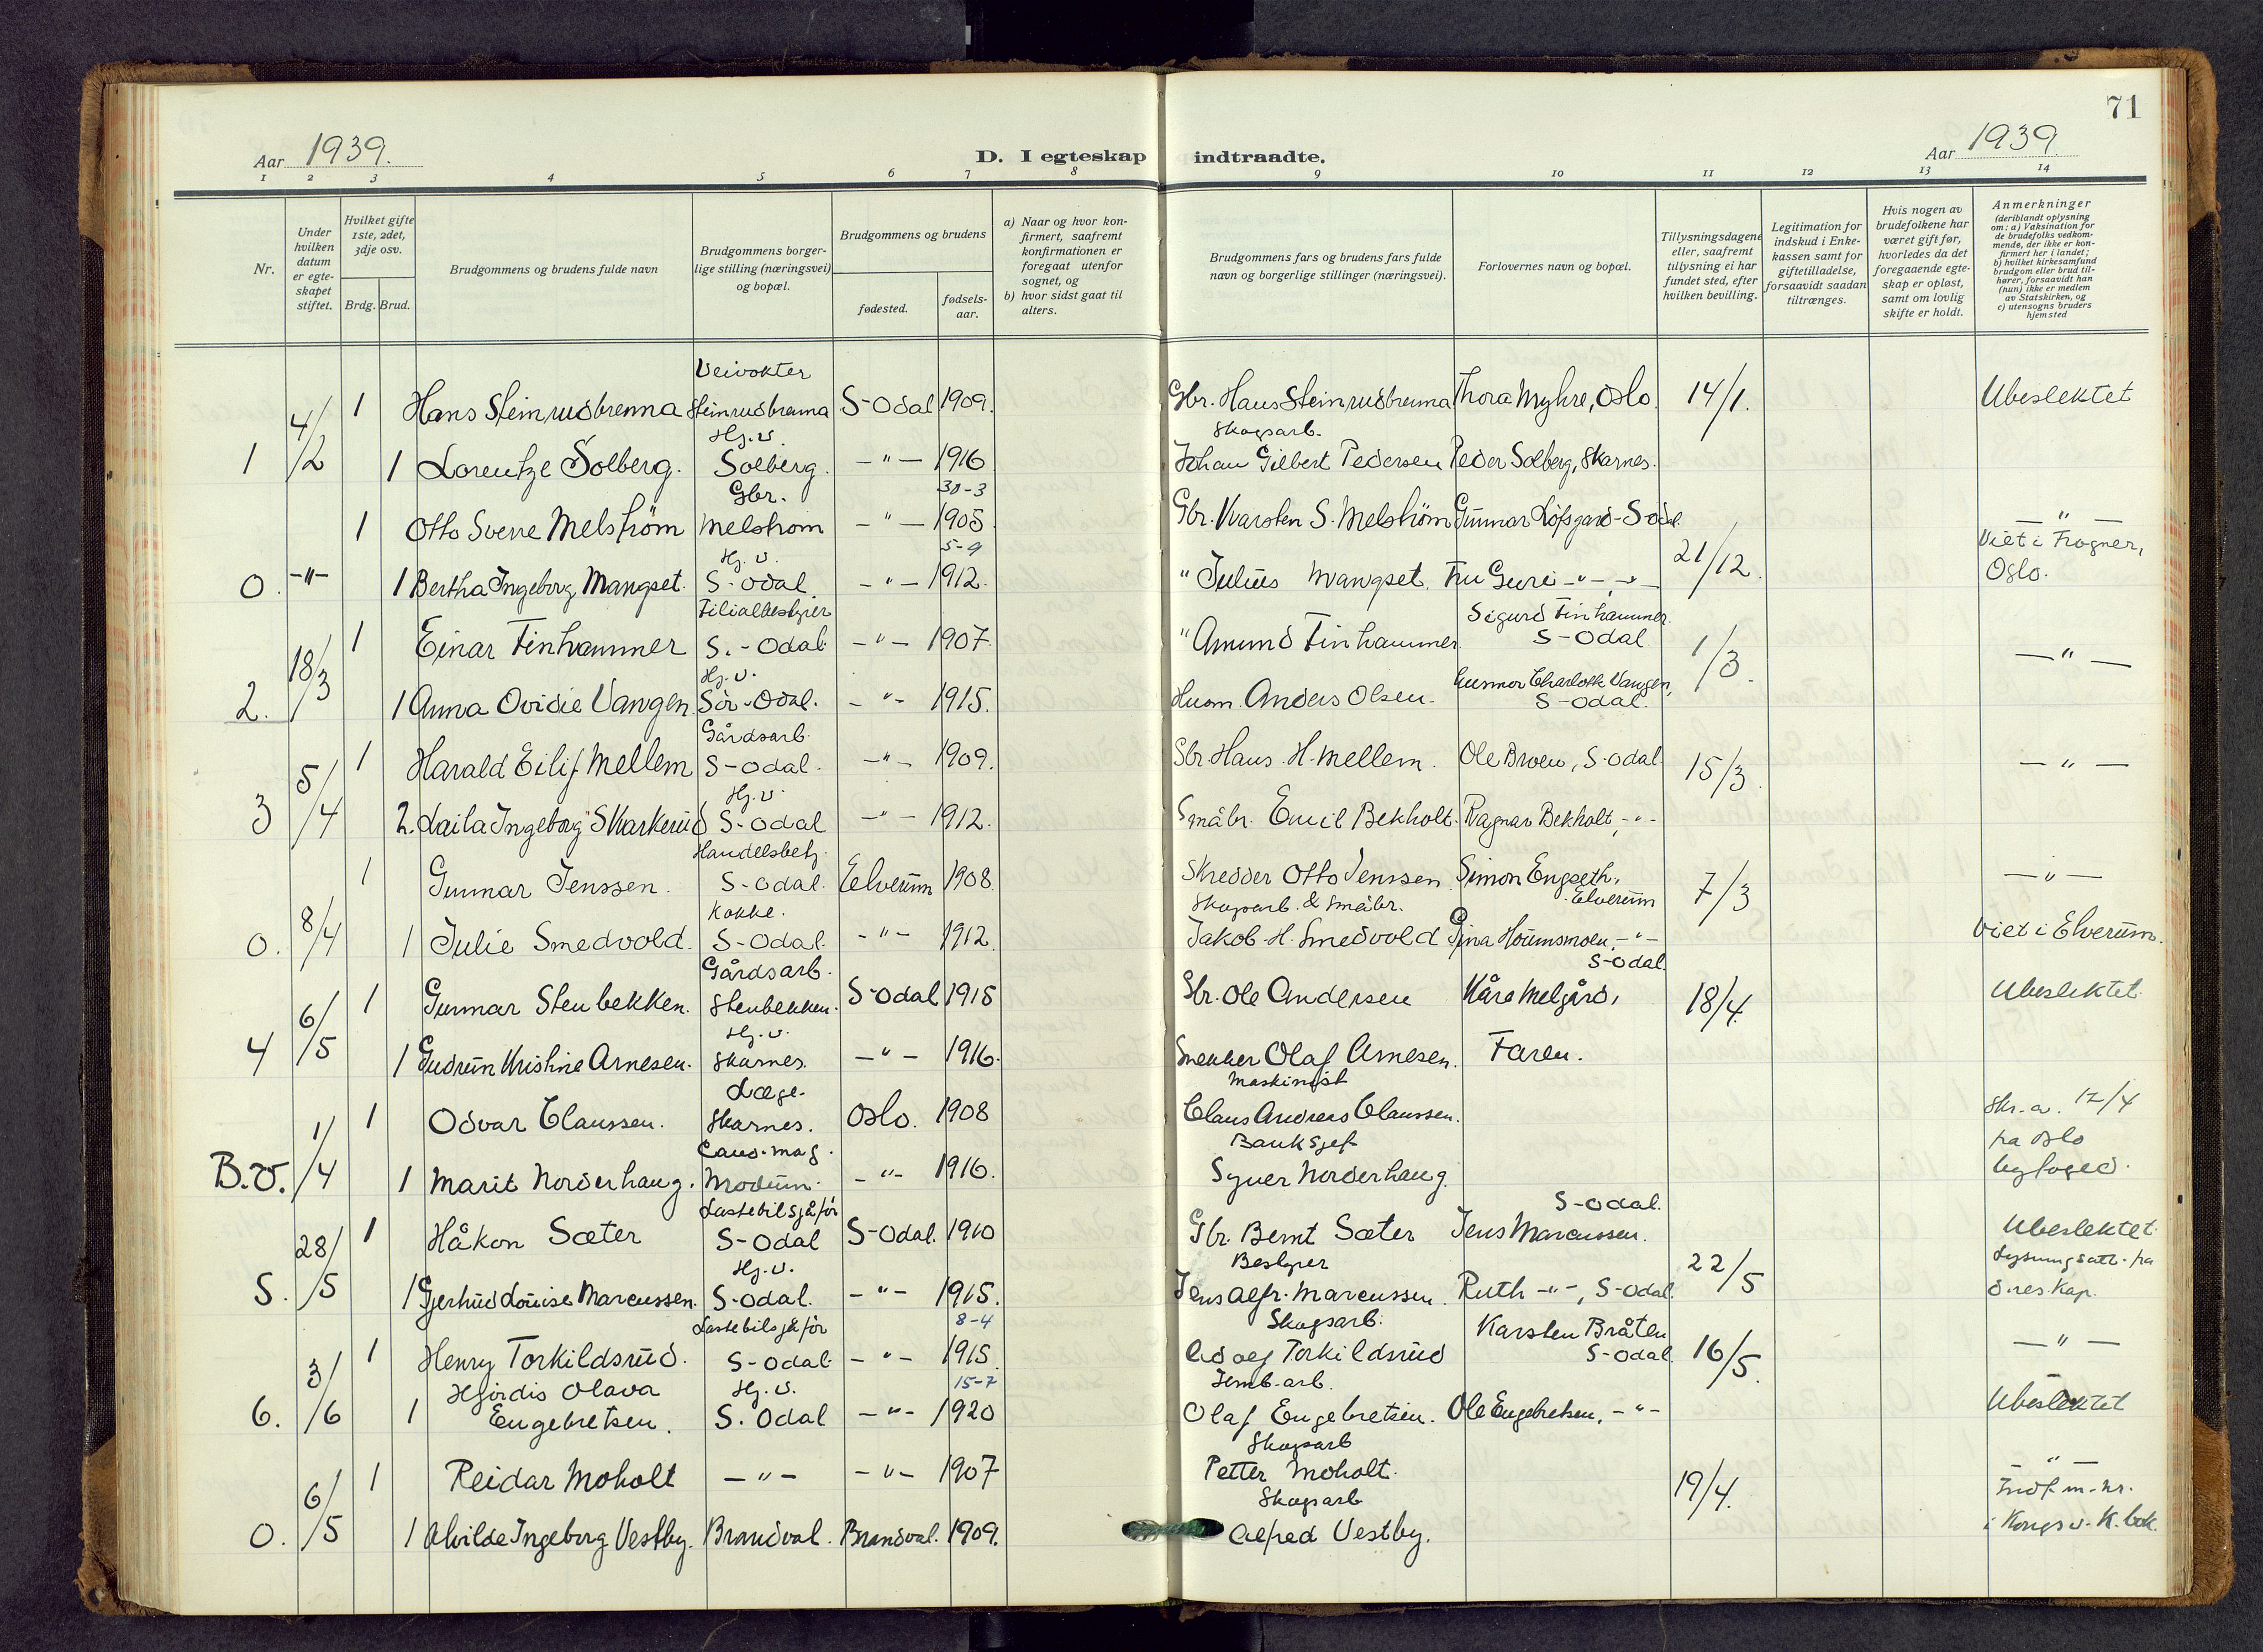 71
Aar 1939.
D. I egteskap indtraadte.
Aar 1939.
1 2 3 4 5 6 7 8 9 10 11 12 13 14
Nr.
Under hvilken datum er egteskapet stiftet.
Hvilket gifte 1ste, 2det, 3dje osv.
Brdg. Brud.
Brudgommens og brudens fulde navn
Brudgommens borgerlige stilling (næringsvei) og bopæl.
Brudgommens og brudens
fødested.
fødsels-aar.
a) Naar og hvor konfirmert, saafremt konfirmationen er foregaat utenfor sognet, og
b) hvor sidst gaat til alters.
Brudgommens fars og brudens fars fulde navn og borgerlige stillinger (næringsvei).
Forlovernes navn og bopæl.
Tillysningsdagene eller, saafremt tillysning ei har fundet sted, efter hvilken bevilling.
Legitimation for indskud i Enkekassen samt for giftetilladelse, forsaavidt saadan tiltrænges.
Hvis nogen av brudefolkene har været gift før, hvorledes da det foregaaende egteskap er opløst, samt om lovlig skifte er holdt.
Anmerkninger
(deriblandt oplysning om: a) Vaksination for de brudefolks vedkommende, der ikke er konfirmert her i landet;
b) hvilket kirkesamfund brudgom eller brud tilhører, forsaavidt han (hun) ikke er medlem av Statskirken, og
c) utensogns bruders hjemsted
Veivokter
4/2 1 Hans Steinrudbrenna Steinrudbrenna S-Odal 1909. Gbr. Hans Steinrudbrenna Thora Myhre, Oslo. 14/1. Ubeslektet
Hj.v. Skogsarb.
1 1 Lorentze Solberg. Solberg. -"- 1916 Johan Gilbert Pedersen Peder Solberg, Skarnes.
Gbr. 30-3
1 Otto Sverre Melström Melstrom -"- 1905 Gbr. Karsten S. Melström Gunnar Löfsgard-S-Odal. -"-
Hj.v. 5-9 21/12. Viet i Frogner,
0. -"- 1 Bertha Ingeborg Mangset. S-Odal. -"- 1912. " Julius Mangset. Fru Guri -"- -"- Oslo.
Filialbestyrer Sigurd Finhammer.
18/3 1 Einar Finhammer S.-Odal. -"- 1907. " Amund Finhammer. S-Odal 1/3. -"-
Hj.v. Charlotte Vangen,
2. 1 Anna Ovidie Vangen. Sör-Odal. -"- 1915. Husm. Anders Olsen. S-Odal.
Gårdsarb.
5/4 1 Harald Eilif Mellem S-Odal. -"- 1909. Gbr. Hans H. Mellem. Ole Broen, S-Odal 15/3. -"-
Hj.v.
3 2. Laila Ingeborg Skarkerud S-Odal -"- 1912. Småbr. Emil Bekholt. Ragnar Bekholt, -"-
Handelsbetj.
1 Gunnar Jenssen. S-Odal. Elverum 1908. Skredder Otto Jenssen Simon Engseth, 7/3 -"-
Kokke. Skogsarb. & Småbr. Elverum
0. 8/4 1 Julie Smedvold. S-Odal. -"- 1912. Jakob H. Smedvold Gina Houmsmoen, -"- Viet i Elverum.
Gårdsarb. S-Odal.
6/5 1 Gunnar Stenbekken. Stenbekken. S-Odal 1915 Gbr. Ole Andersen Kåre Melgård, 18/4. Ubeslektet.
Hj.v.
4 1 Gudrun Kristine Arnesen. Skarnes. -"- 1916. Snekker Olaf Arnesen. Faren.
Læge. Maskinist
1/4 1 Odvar Claussen. Skarnes. Oslo. 1908 Claus Andreas Claussen. Skr. a. 12/4
Cand. mag. Banksjef fra Oslo
B.v. 1 Marit Norderhaug. Modum. -"- 1916. Syver Norderhaug. byfoged.
Lastebilsjåför S-Odal.
28/5 1 Håkon Sæter S-Odal S-Odal. 1910 Gbr. Bernt Sæter Jens Marcussen. Ubeslektet.
Hj.v. Bestyrer 22/5 Lysningsatt. fra
5. 1 Gjertrud Louise Marcussen. S-Odal. -"- 1915. Jens Alfr. Marcussen. Ruth -"-, S-Odal. d. res. kap.
Lastebilsjåför 8-4 Skogsarb. Karsten Bråten
3/6 1 Henry Torkildsrud. S-Odal. -"- 1915. Adolf Torkildsrud S-Odal 16/5. -"-
Hjördis Olava Hj.v. 15-7 Jernb. arb.
6. 1 Engebretsen. S. Odal -"- 1920 Olaf Engebretsen. Ole Engebretsen, -"- Ubeslektet
Skogsarb
6/5 1 Reidar Moholt -"- -"- 1907 Petter Moholt. 19/4. -"-
Skogsarb Indf. m. nr.
0. 1 Alvilde Ingeborg Vestby. Brandval. Brandval. 1909. Alfred Vestby. i Kongsv. K.bok.